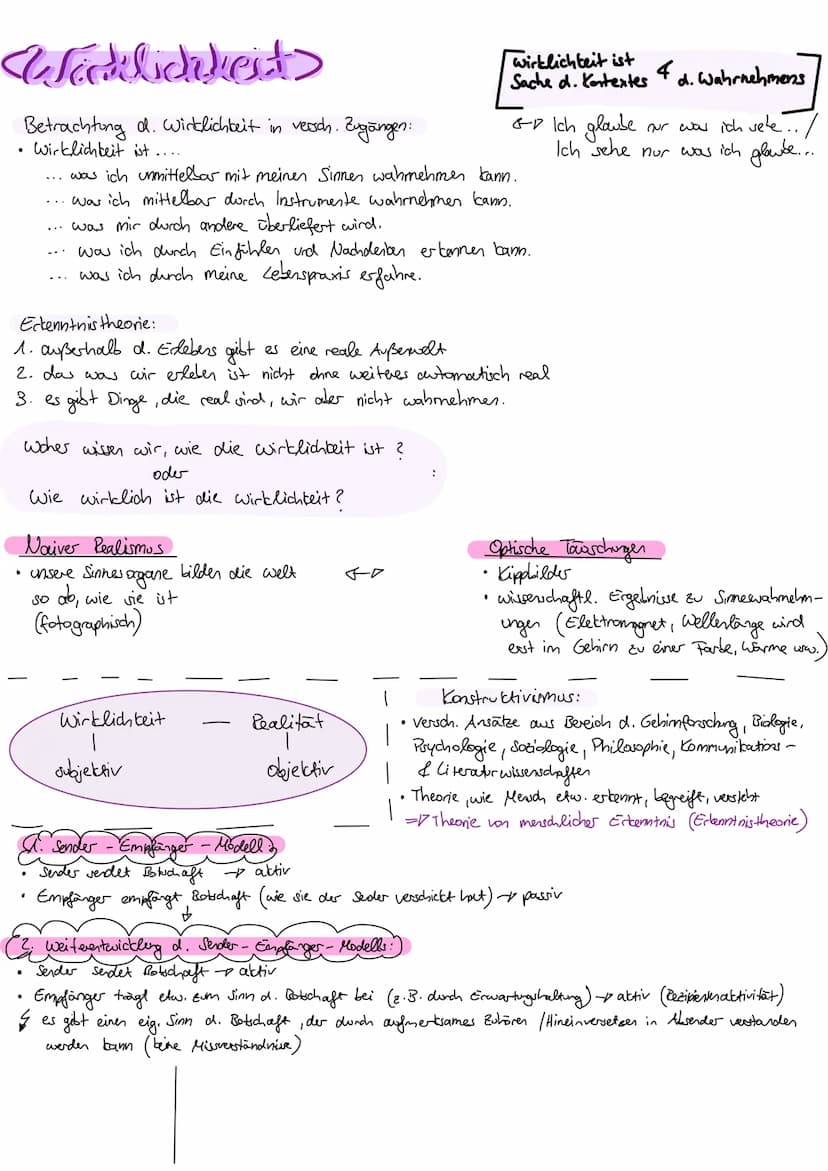 Wirklichkeit
wirklichkeit ist
Sache d. Kontextes & d. Wahrnehmens
Betrachtung d. Wirklichkeit in versch. Zugängen:
<-> Ich glaube nur was ich sehe.. /
Ich sehe nur was ich glaube...
• Wirklichkeit ist ....
... was ich unmittelbar mit meinen Sinnen wahrnehmen kann.
... was ich mittelbar durch Instrumente wahrnehmen kann.
... was mir durch andere überliefert wird.
... was ich durch Einfühlen und Nachdenken erkennen kann.
... was ich durch meine Lebenspraxis erfahre.
Erkenntnistheorie:
1. außerhalb d. Erlebens gibt es eine reale Außenwelt
2. das was wir erleben ist nicht ohne weiteres automatisch real
3. es gibt Dinge, die real sind, wir aber nicht wahrnehmen.
Woher wissen wir, wie die Wirklichkeit ist ?
oder :
Wie wirklich ist die Wirklichkeit?
Naiver Realismus
• unsere Sinnesorgane bilden die Welt <->
so ab, wie sie ist
(fotographisch)
Optische Täuschungen
• Kippbilder
• wissenschaftl. Ergebnisse zu Sinnewahrnehm-
ungen (Elektromagnet, Wellenlänge wird
erst im Gehirn zu einer Farbe, Wärme usw.)
Wirklichkeit — Realität
subjektiv objektiv
Konstruktivismus:
• versch. Ansätze aus Bereich d. Gehirnforschung, Biologie,
Psychologie, Soziologie, Philosophie, Kommunikations-
& Literaturwissenschaften
• Theorie, wie Mensch etw. erkennt, begreift, versteht
=> Theorie von menschlicher Erkenntnis (Erkenntnistheorie)
1. Sender - Empfänger - Modell:
• Sender sendet Botschaft -> aktiv
• Empfänger empfängt Botschaft (wie sie der Sender verschickt hat) -> passiv
2. Weiterentwicklung d. Sender - Empfänger - Modells:
• Sender sendet Botschaft -> aktiv
• Empfänger trägt etw. zum Sinn d. Botschaft bei (z.B. durch Erwartungshaltung) -> aktiv (Rezipientenaktivität)
↯ es gibt einen eig. Sinn d. Botschaft, der durch aufmerksames Zuhören / Hineinversetzen in Absender verstanden
werden kann (keine Missverständnisse)